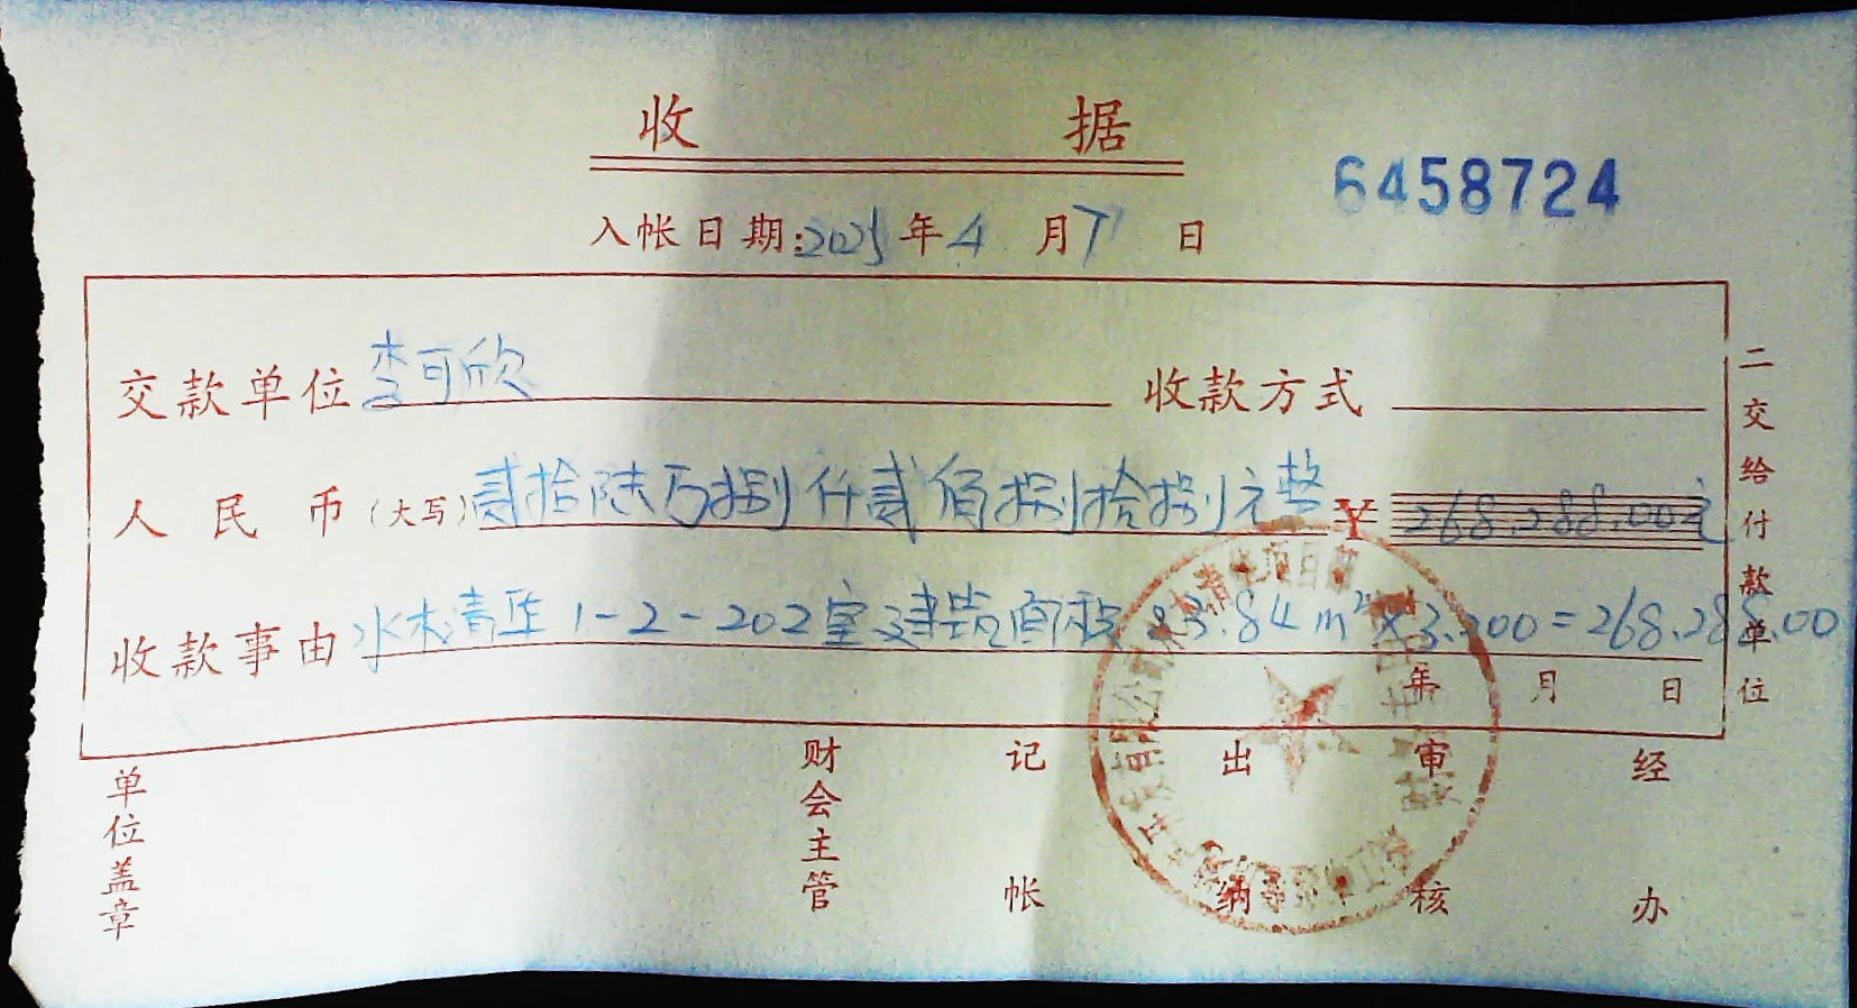 收据
6458724
入帐日期:2025年4月7日
交款单位 李可欣 收款方式
人民币(大写)贰拾陆万捌仟贰佰捌拾捌元整 ¥268.288.00元
收款事由 水木清华1-2-202室建筑面积83.84m²×3.200=268.288.00
年 月 日
二交给付款单位
单位盖章 财会主管 记帐 出纳 审核 经办